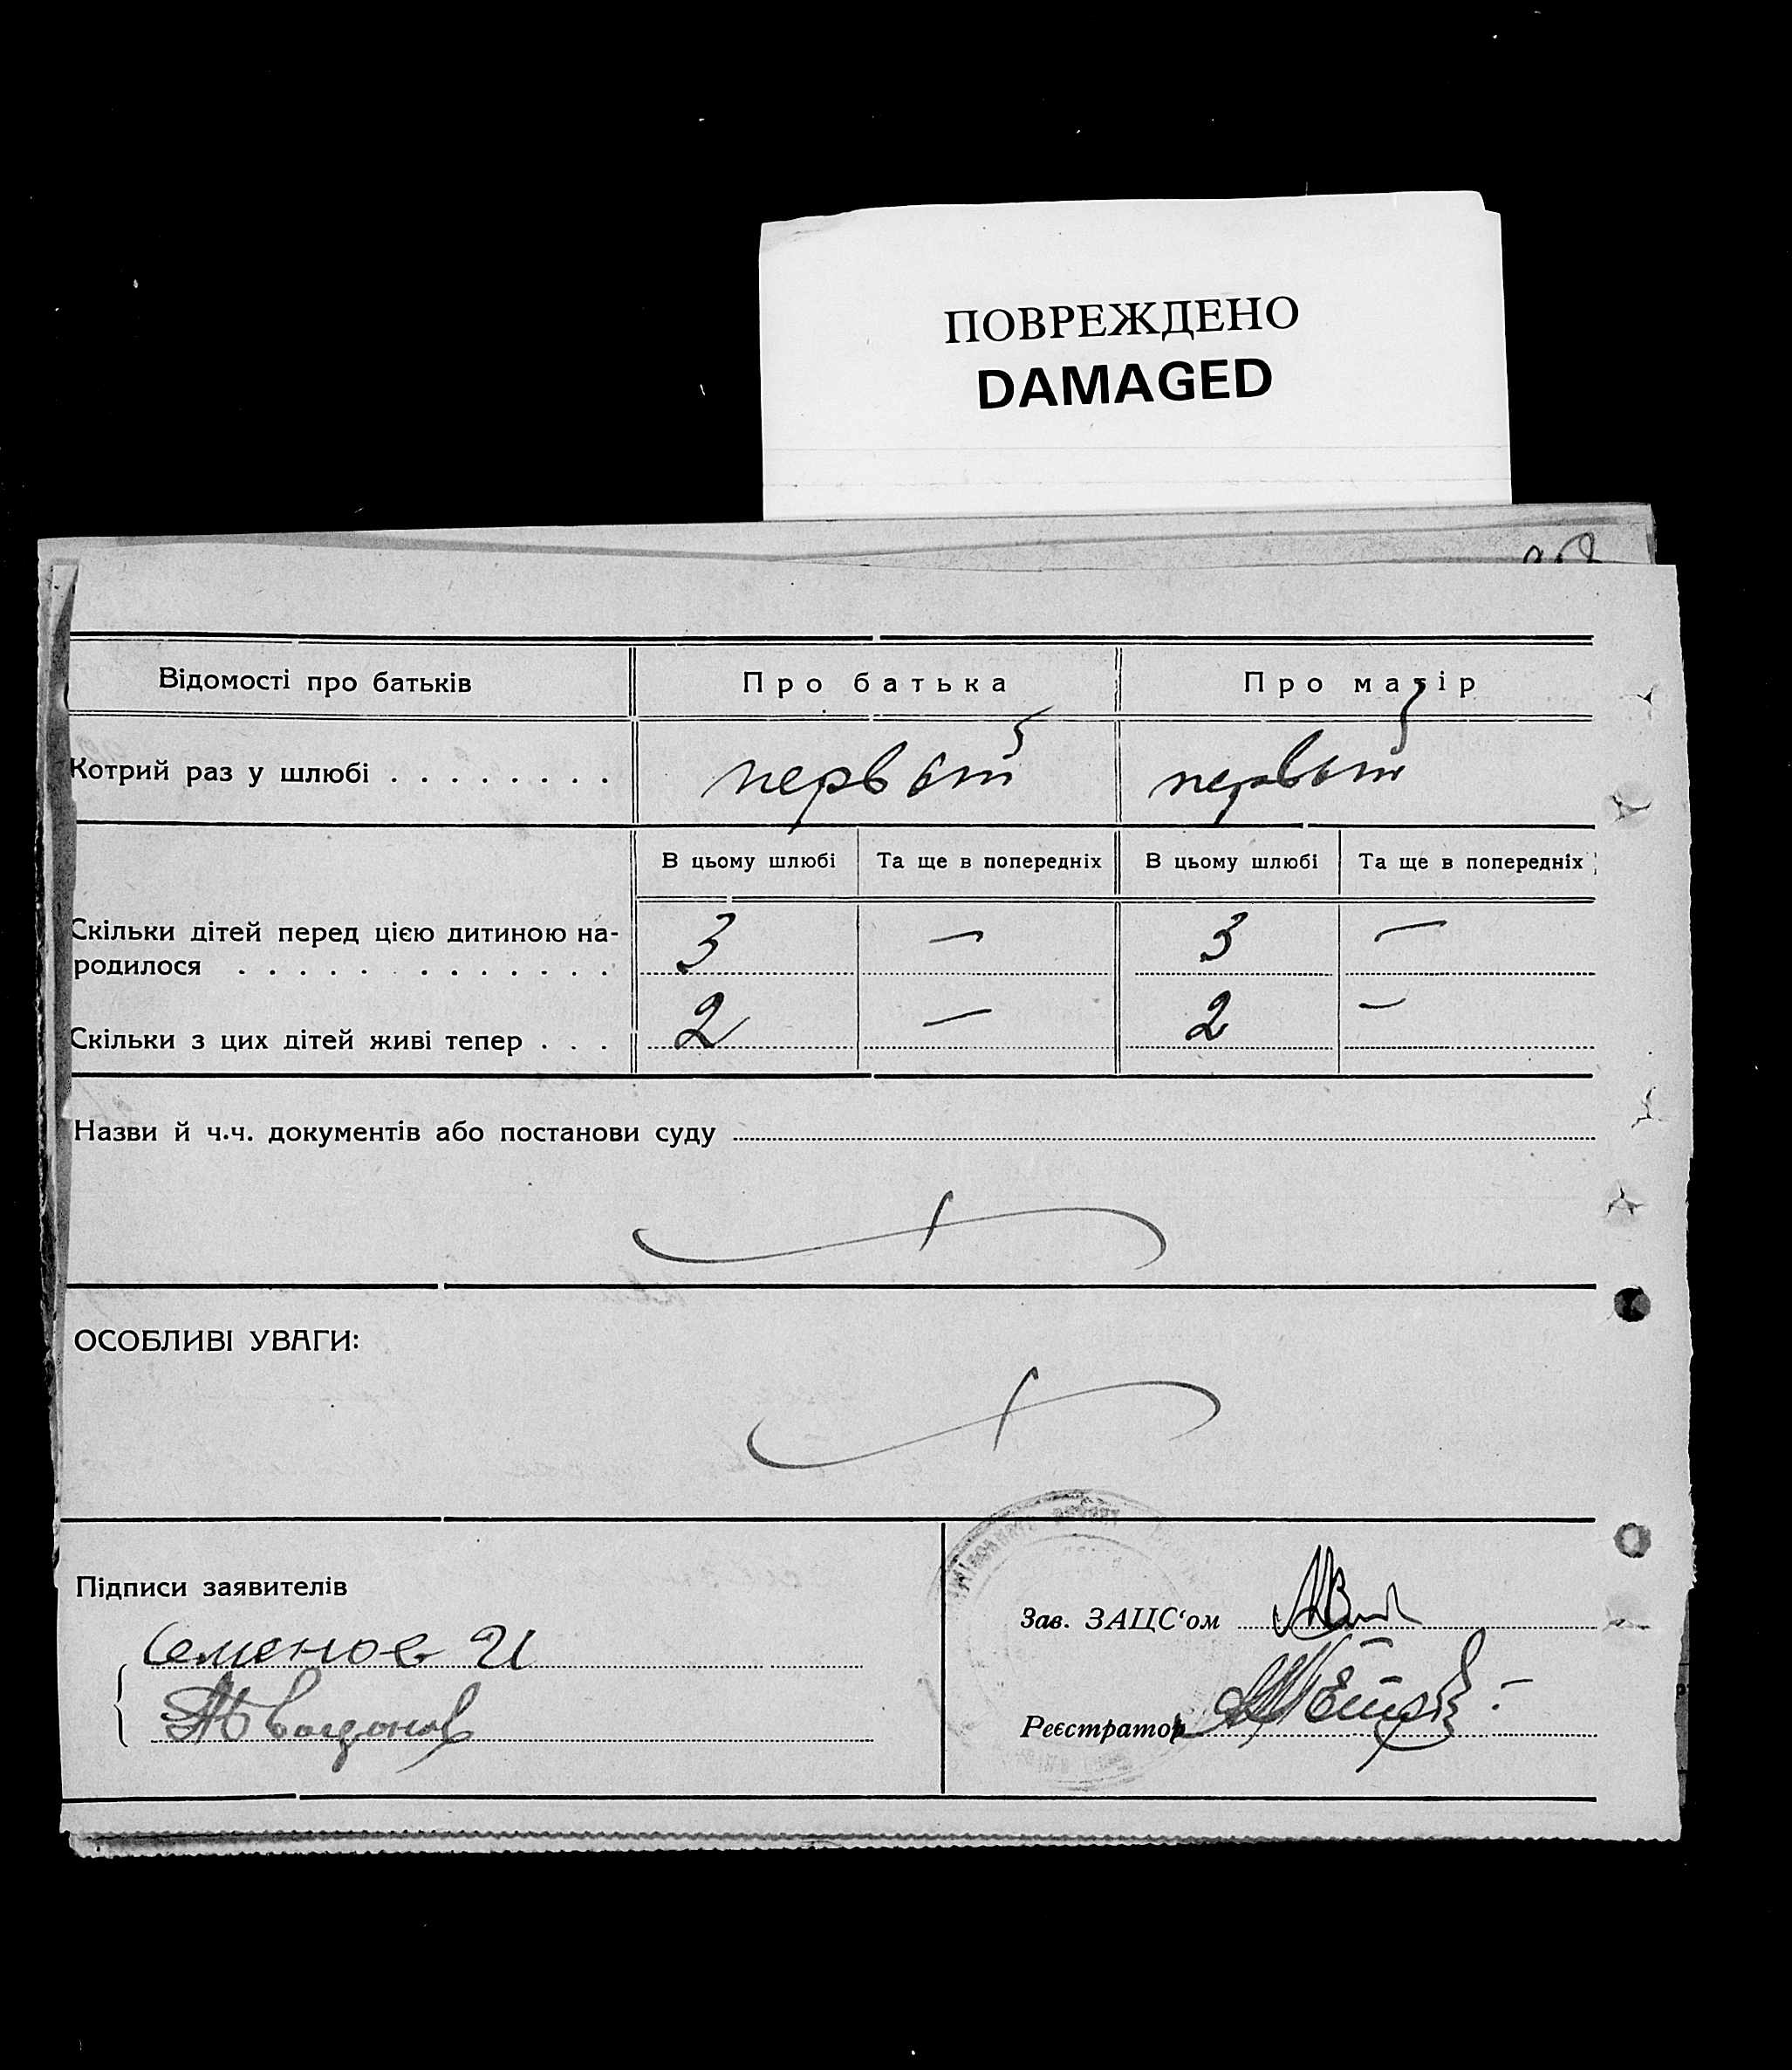 ПОВРЕЖДЕНО
DAMAGED
Відомості про батьків
Про батька
Про матір
Котрий раз у шлюбі . . . . . . . .
первый
первый
В цьому шлюбі
Та ще в попередніх
В цьому шлюбі
Та ще в попередніх
Скільки дітей перед цією дитиною на-
родилося . . . . . . . . . . . .
3
—
3
—
Скільки з цих дітей живі тепер . . .
2
—
2
—
Назви й ч.ч. документів або постанови суду
ОСОБЛИВІ УВАГИ:
Підписи заявителів
Семенов И
Зав. ЗАЦС‘ом
Реєстратор